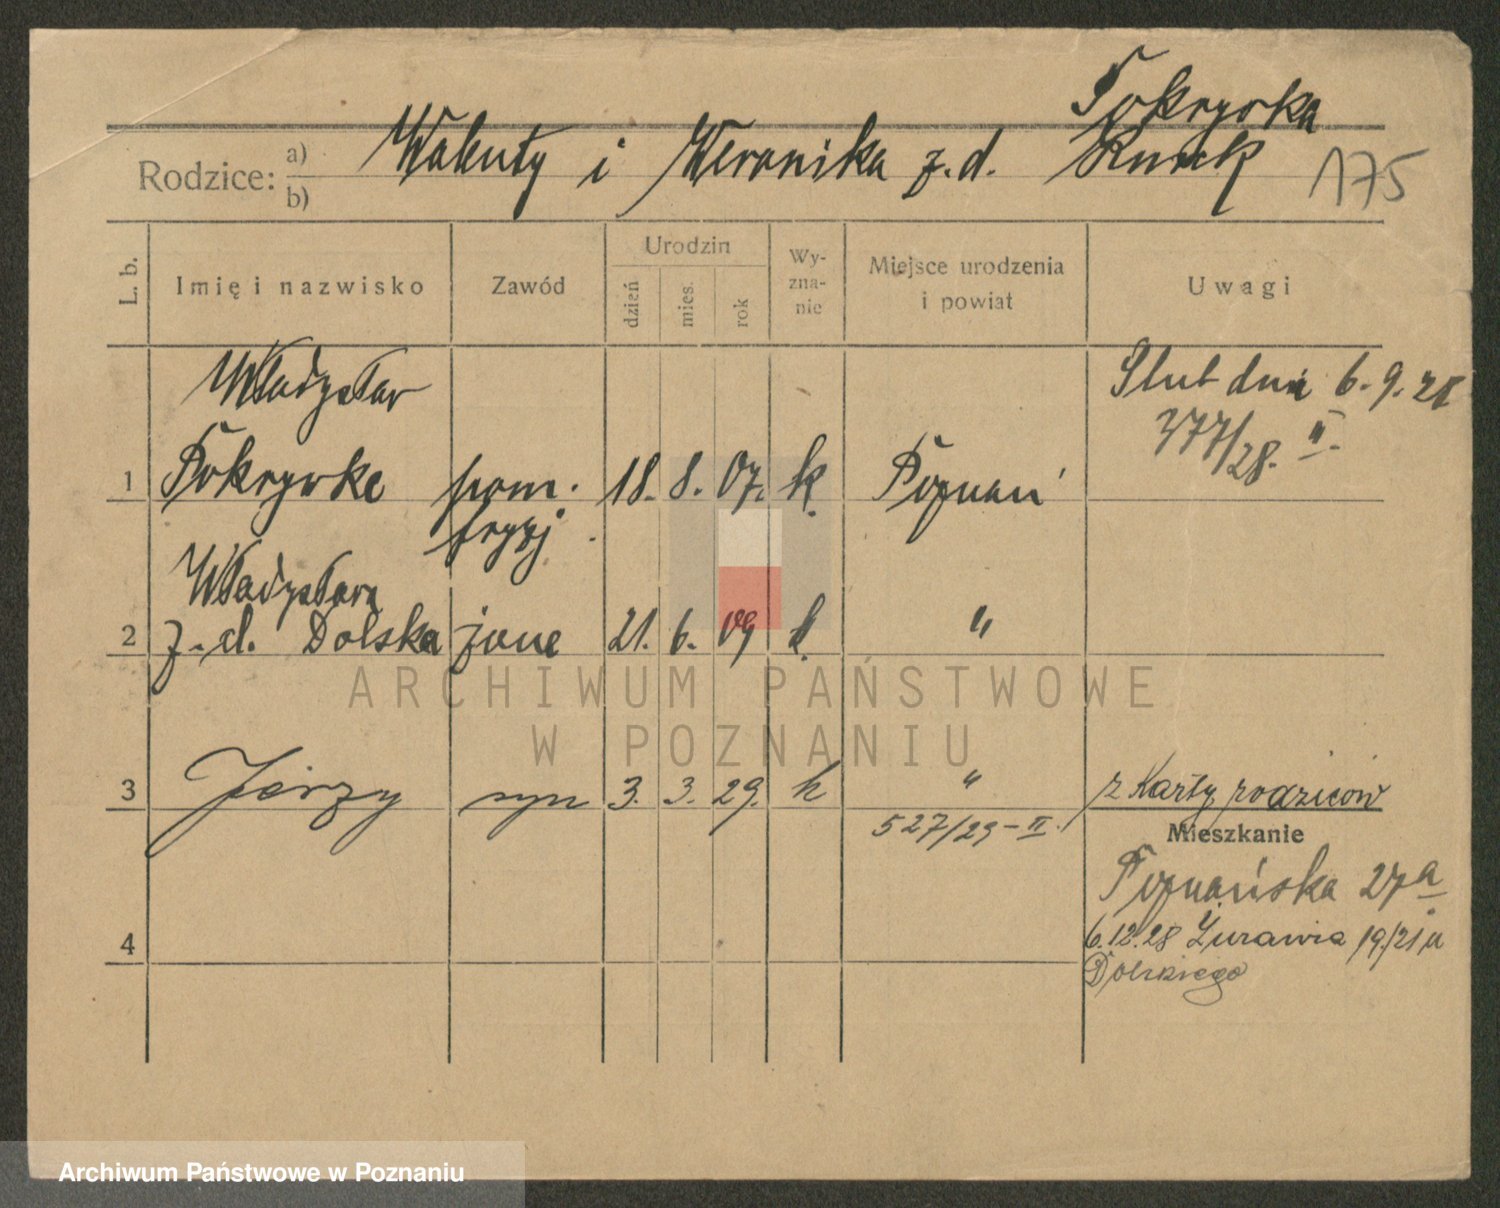 Pokrywka
Rodzice: a) b) Walenty i Weronika z.d. Kurek 175
L. b.
Imię i nazwisko
Zawód
Urodzin
dzień mies. rok
Wy-
zna-
nie
Miejsce urodzenia
i powiat
Uwagi
Władysław
1 Pokrywka pom. 18. 8. 07. k. Poznań
fryzj.
Ślub dnia 6.9.28
377/28. II.
Władysława
2 z.d. Dolska żona 21. 6. 09 k. "
3 Jerzy syn 3. 3. 29. k " z Karty rodziców
527/29-II.
Mieszkanie
Poznańska 27a
4
6.12.28 Żurawia 19/21 u
Dolskiego
ARCHIWUM PAŃSTWOWE
W POZNANIU
Archiwum Państwowe w Poznaniu